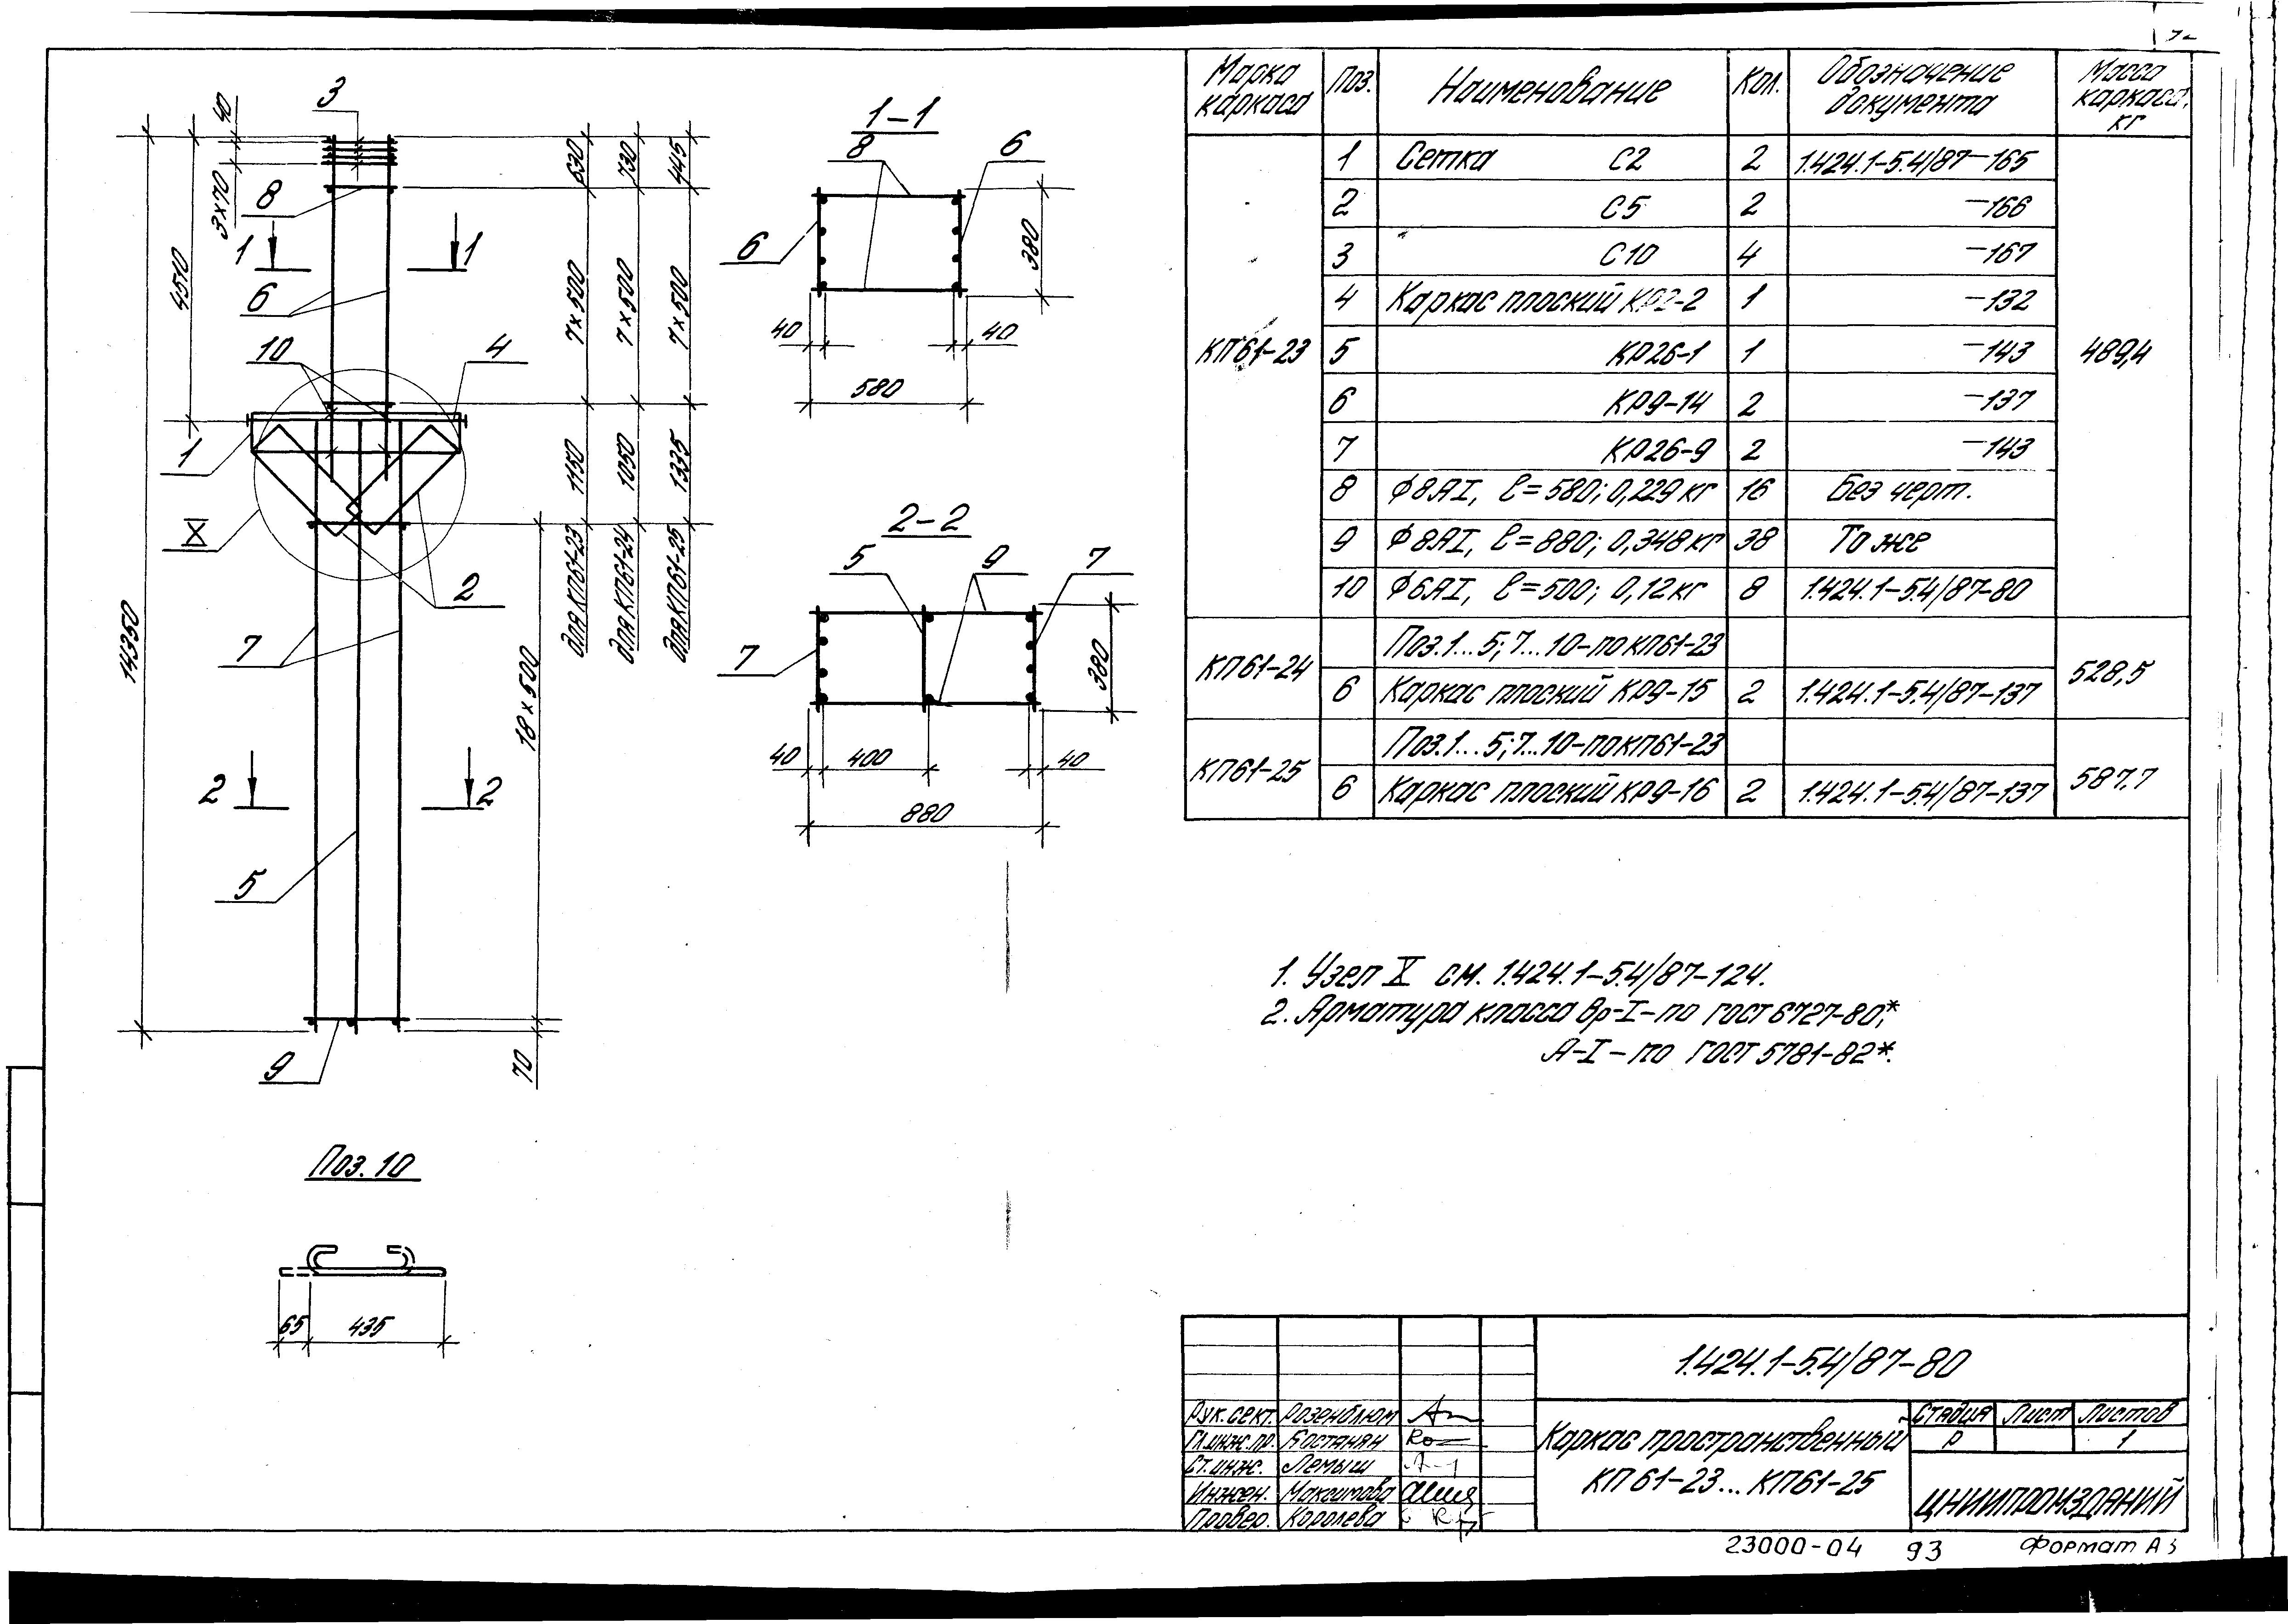 Марка каркаса | Поз. | Наименование | Кол. | Обозначение документа | Масса каркаса, кг
КП61-23 | 489,4
1 | Сетка С2 | 2 | 1.424.1-5.4/87-165
2 | С5 | 2 | -166
3 | С10 | 4 | -167
4 | Каркас плоский КР2-2 | 1 | -132
5 | КР26-1 | 1 | -143
6 | КР9-14 | 2 | -137
7 | КР26-9 | 2 | -143
8 | ϕ8АI, ℓ=580; 0,229кг | 16 | Без черт.
9 | ϕ8АI, ℓ=880; 0,348кг | 38 | То же
10 | ϕ6АI, ℓ=500; 0,12кг | 8 | 1.424.1-5.4/87-80
КП61-24 | 528,5
Поз.1...5;7...10-по КП61-23
6 | Каркас плоский КР9-15 | 2 | 1.424.1-5.4/87-137
КП61-25 | 587,7
Поз.1...5;7...10-по КП61-23
6 | Каркас плоский КР9-16 | 2 | 1.424.1-5.4/87-137
3
40
3×70
8
1 1
4510
6
10
4
1
X
2
14350
7
2 2
5
9
18×500
70
630
7×500
1150
для КП61-23
730
7×500
1050
для КП61-24
445
7×500
1335
для КП61-25
1-1
8
6
6
380
40
40
580
2-2
5
9
7
7
380
40
400
40
880
Поз.10
65
435
1. Узел X см. 1.424.1-5.4/87-124.
2. Арматура класса Вр-I-по ГОСТ 6727-80*;
А-I-по ГОСТ 5781-82*.
1.424.1-5.4/87-80
Рук.сект. Розенблюм
Гл.инж.пр. Костанян
Ст.инж. Лемыш
Инжен. Максимова
Провер. Королева
Каркас пространственный
КП61-23...КП61-25
Стадия Лист Листов
Р 1
ЦНИИПРОМЗДАНИЙ
23000-04 93 Формат А3